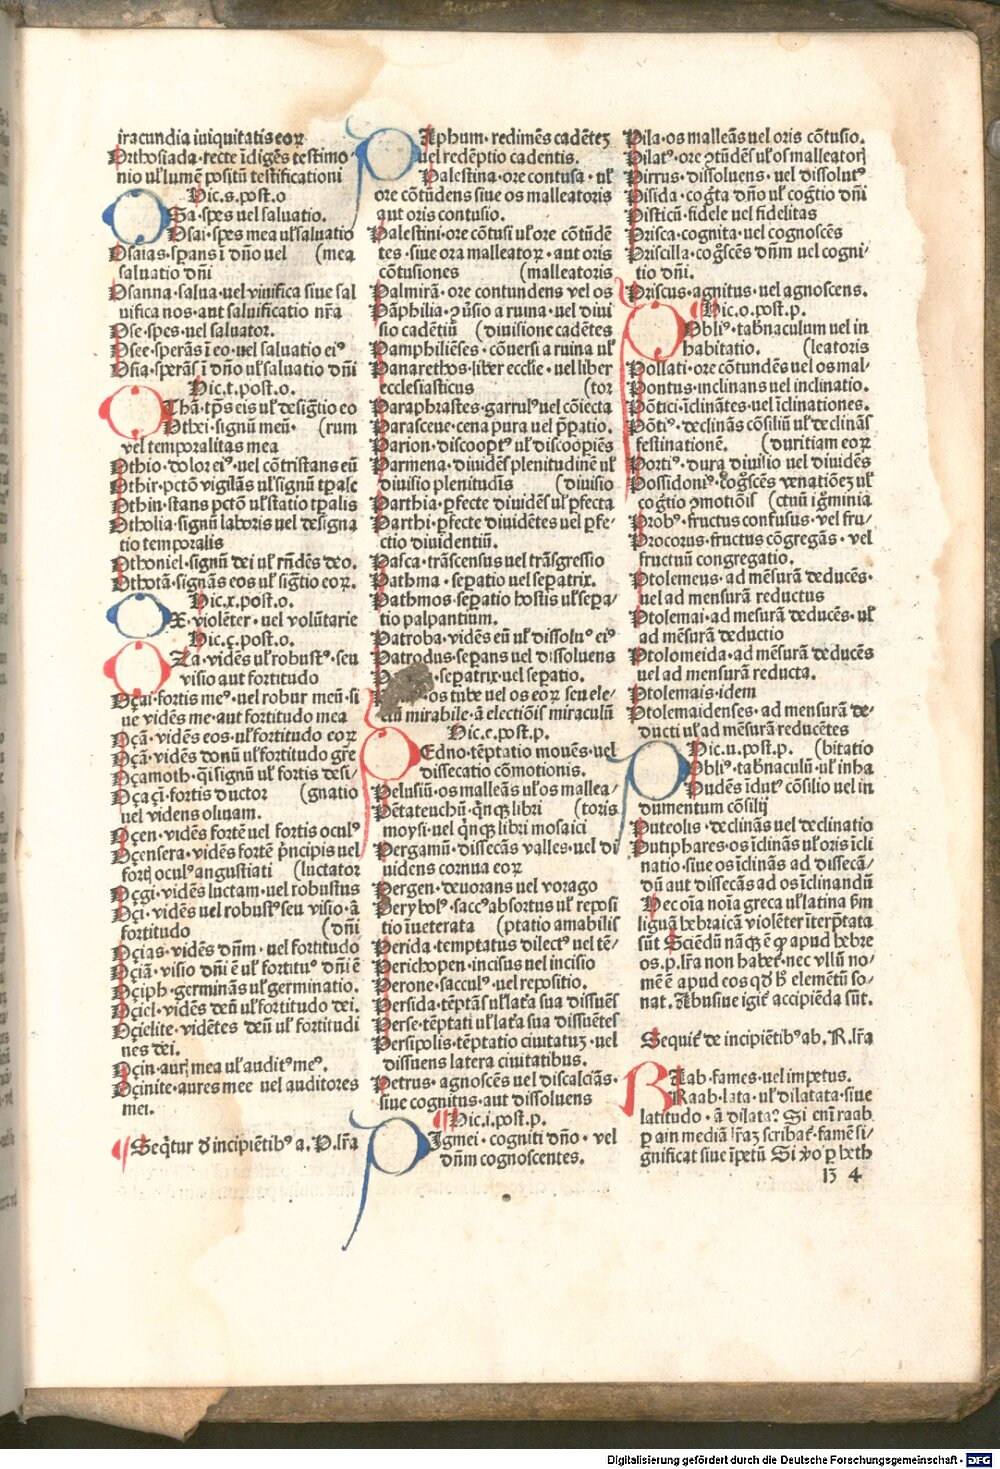 iracundia iniquitatis eoꝝ
Orthosiada · recte ĩdigēs testimo-
nio ul̉ lumē positū testificationi
Hic.s.post.o
OSa · spes uel saluatio.
Osai · spes mea ul̉ saluatio
Osaias · sperans ĩ dño uel (mea
saluatio dñi
Osanna · salua · uel viuifica siue sal
uifica nos · aut saluificatio nr̃a
Ose · spes · uel saluator.
Osee · sperãs ĩ eo · uel saluatio eiꝰ
Osia · sperãs ĩ dño ul̉ saluatio dñi
Hic.t.post.o.
OThã · tp̃s eis ul̉ desig̃tio eo
Othei · signū meū · (rum
vel temporalitas mea
Othio · dolor eiꝰ · uel cõtristans eū
Othir · pctõ vigilãs ul̉ signū tp̃ale
Othin · stans pctõ ul̉ statio tp̃alis
Otholia · signū laboris uel designa
tio temporalis
Othoniel · signū dei ul̉ rñdēs deo.
Othotã · signãs eos ul̉ sig̃tio eoꝝ.
Hic.x.post.o.
OX · violēter · uel volūtarie
Hic.ç.post.o.
OZa · vidēs ul̉ robustꝰ · seu
visio aut fortitudo
Oçai · fortis meꝰ · uel robur meū · si
ue vidēs me · aut fortitudo mea
Oçã · vidēs eos · ul̉ fortitudo eoꝝ
Oçã · vidēs donū ul̉ fortitudo gr̃e
Oçamoth · q̃i signū ul̉ fortis desi/
Oçaçi · fortis ductor (gnatio
uel videns oliuam.
Oçen · vidēs fortē uel fortis oculꝰ
Oçensera · vidēs fortē p̃ncipis uel
fortꝭ oculꝰ angustiati (luctator
Oçgi · vidēs luctam · uel robustus
Oçi · vidēs uel robustꝰ seu visio · ã
fortitudo (dñi
Oçias · vidēs dñm · uel fortitudo
Oçiã · visio dñi ē ul̉ fortituᵒ dñi ē
Oçiph · germinãs ul̉ germinatio.
Oçiel · vidēs deū ul̉ fortitudo dei.
Oçielite · vidētes deū ul̉ fortitudi
nes dei.
Oçin · aurꝭ mea ul̉ auditꝰ meꝰ.
Oçinite · aures mee uel auditores
mei.
Seq̃tur d̉ incipiētibꝰ a. P. lr̃a
PAphum · redimēs cadētez
uel redēptio cadentis.
Palestina · ore contusa · ul̉
ore cõtūdens siue os malleatoris
aut oris contusio.
Palestini · ore cõtusi ul̉ ore cõtūdē
tes · siue ora malleatoꝝ · aut oris
cõtusiones (malleatoris
Palmirã · ore contundens vel os
Pãphilia · ꝯuersio a ruina · uel diui
sio cadētiū (diuisione cadētes
Pamphiliēses · cõuersi a ruina ul̉
Panarethos · liber ecclie · uel liber
ecclesiasticus (tor
Paraphrastes · garrulꝰ uel cõiecta
Parasceue · cena pura uel pp̃atio.
Parion · discooptꝰ ul̉ discoopiēs
Parmena · diuidēs plenitudinē ul̉
diuisio plenitudis (diuisio
Parthia · pfecte diuidēs ul̉ pfecta
Parthi · pfecte diuidētes uel pfe-
ctio diuidentiū.
Pasca · trãscensus uel trãsgressio
Pathma · sepatio uel sepatrix.
Pathmos · sepatio hostis ul̉ sepa/
tio palpantium.
Patroba · vidēs eū ul̉ dissoluꝰ eiꝰ
Patrodus · sepans uel dissoluens
· sepatrix · uel sepatio.
os tube uel os eoꝝ seu ele-
ctū mirabile · ã electiõis miraculū
Hic.e.post.p.
PEdno · tēptatio mouēs · uel
dissecatio cõmotionis.
Pelusiū · os malleãs ul̉ os mallea/
Pētateuchū · q̃nqꝫ libri (toris
moysi · uel q̃nqꝫ libri mosaici
Pergamū · dissecãs valles · uel di
uidens cornua eoꝝ
Pergen · deuorans uel vorago
Perybolꝰ · saccꝰ absortus ul̉ reposi
tio iueterata (ptatio amabilis
Perida · temptatus dilectꝰ uel tē/
Perichopen · incisus uel incisio
Perone · sacculꝰ · uel repositio.
Persida · tēptãs ul̉ lat̃a sua dissuēs
Perse · tēptati ul̉ lat̃a sua dissuētes
Persipolis · tēptatio ciuitatuꝫ · uel
dissuens latera ciuitatibus.
Petrus · agnoscēs uel discalciãs ·
siue cognitus · aut dissoluens
Hic.i.post.p.
PIgmei · cogniti dño · vel
dñm cognoscentes.
Pila · os malleãs uel oris cõtusio.
Pilatꝰ · ore ꝯtūdēs ul̉ os malleatorꝭ
Pirrus · dissoluens · uel dissolutꝰ
Pisida · cog̃ta dño ul̉ cog̃tio dñi
Pisticū · fidele uel fidelitas
Prisca · cognita · uel cognoscēs
Priscilla · cog̃scēs dñm uel cogni/
tio dñi.
Priscus · agnitus · uel agnoscens.
Hic.o.post.p.
PObliꝰ · tab̃naculum uel in
habitatio. (leatoris
Pollati · ore cõtūdēs uel os mal-
Pontus · inclinans uel inclinatio.
Põtici · ĩclinãtes · uel ĩclinationes.
Põtiꝰ · declinãs cõsiliū ul̉ declinãs
festinationē. (duritiam eoꝝ
Portiꝰ · dura diuisio uel diuidēs
Possidoniꝰ · cog̃scēs venatiõez ul̉
cog̃tio ꝯmotiõis (ctuū ig̃minia
Probꝰ · fructus confusus · vel fru/
Procorus · fructus cõgregãs · vel
fructuū congregatio.
Ptolemeus · ad mēsurã deducēs ·
uel ad mensurã reductus
Ptolemai · ad mesurã deducēs · ul̉
ad mēsurã deductio
Ptolomeida · ad mēsurã deducēs
uel ad mensurã reducta.
Ptolemais · idem
Ptolemaidenses · ad mensurã de-
ducti ul̉ ad mensurã reducētes
Hic.u.post.p. (bitatio
PUbliꝰ · tab̃naculū · ul̉ inha
Pudēs ĩdutꝰ cõsilio uel in
dumentum cõsilij
Puteolis · declinãs uel declinatio
Putiphares · os ĩclinãs ul̉ oris ĩcli
natio · siue os ĩclinãs ad dissecã/
dū aut dissecãs ad os ĩclinandū
Hec oĩa noĩa greca ul̉ latina s̃m
liguã hebraicã violēter ĩterp̃tata
sūt Sciēdū nãqꝫ ē ꝙ apud hebre
os.p.lr̃a non habet̃ · nec vllū no-
mē ē apud eos qd̉ h̉ elemētū so-
nat. Abusiue igit̃ accipiēda sūt.
Sequit̃ de incipiētibꝰ ab. R. lr̃a
RAab · fames · uel impetus.
Raab · lata · ul̉ dilatata · siue
latitudo · ã dilata? Si em̃ raab
ꝑ ain mediã lr̃az scribat̃ · famē si/
gnificat siue ĩpetū Si ṽo ꝑ heth
13 4
Digitalisierung gefördert durch die Deutsche Forschungsgemeinschaft - DFG